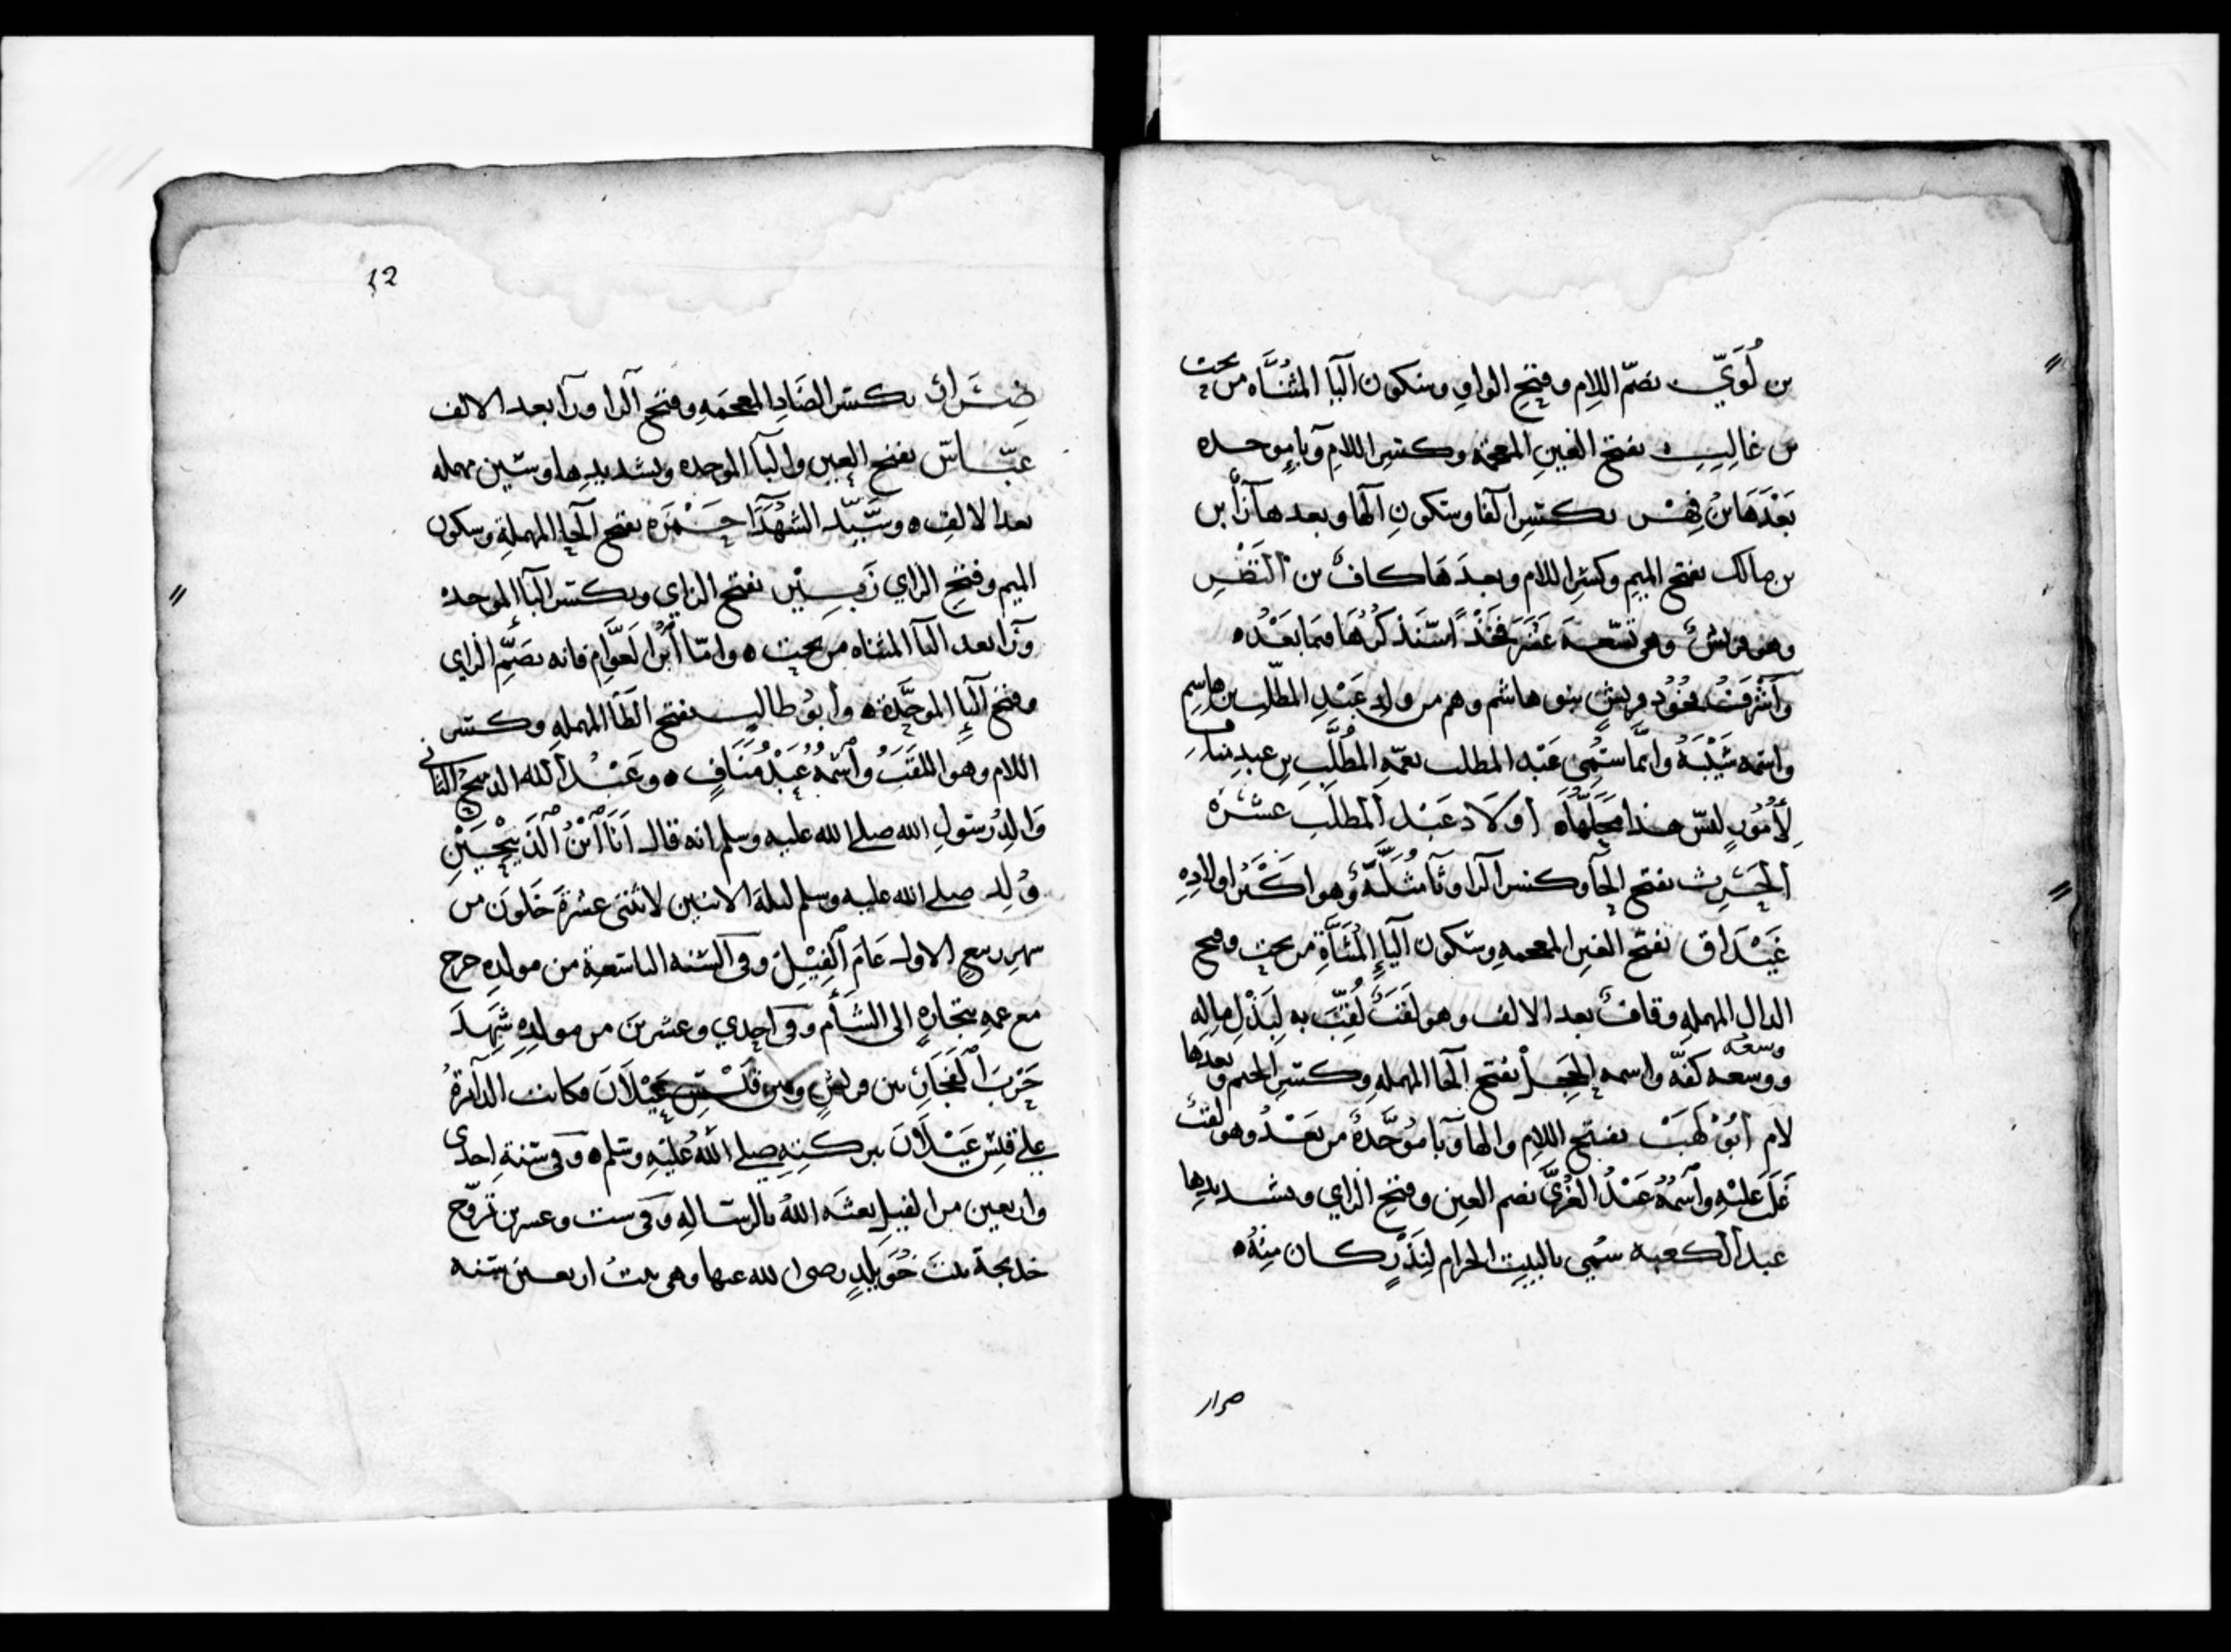 بن لُوَيّ بضمّ اللام وفتح الواو وسكون اليا المثنّاه من تحت
بن غالِب بفتح الغين المعجمة وكسر اللام وبا موحده
بَعْدَهَا بنُ فِهْر بكسر الفا وسكون الها وبعدها رآ بن
بن مالك بفتح الميم وكسر اللام وبعدَهَا كافٌ بن النَّضْر
وهو قريش وهي تسعة عَشَرَ فَخَذًا سنذكرها فيما بَعْدُه
وأشرفَتْ قريشٍ بنو هاشم وهم من ولدِ عَبْدِ المطّلب بن هاشم
واسمه شَيْبَةُ وانّما سُمّى عَبْد المطلب بعمّه المُطَّلِب بن عبد مناف
لأمُورٍ ليس هذا محلّهاه أولاد عَبْد المطّلب عشرة
الحَرِث بفتح الحآ وكسر الرا وثآ مثلّثةٌ وهو اكبَر اولادِه
غَيْدَاق بفتح الغين المعجمه وسكون اليا المثنّاة من تحت وفتح
الدال المهمله وقافٌ بعد الالف وهو لقبٌ لُقّبَ به لبَذْلِ مالِه
وسعة
ووسعه كفّه واسمه الحَجِل بفتح الحا المهمله وكسر الجيم وبعدها
لام أبُوْ لَهَبْ بفتح اللام والها وبا موحّدةٌ من بَعْدُ وهو لقبٌ
غَلَبَ عليْهِ واسْمُهُ عَبْدُ العُزَّى بضم العين وفتح الزاي وتشديدِها
عبد الكعبة سُمي بالبيت الحرام لِنَذْرٍ كان مِنْهُه
ضرار
12
ضِرَار بكسر الضَادِ المعجمَهِ وفتح الرا ورآ بعد الالف
عبّاس بفتح العين والبآ الموحده وتشديدِها وسين مهمله
بعد الالفِه وسَيّد الشهَدَآ حَمْزَه بفتح الحآ المهملة وسكون
الميم وفتح الزاي زَبِيْر بفتح الزاي وبكسر البآ الموحده
ورآ بعد اليآ المثناه من تحت ه وامّا أبُو العَوَّامِ فانه بضَمِّ الزاي
وفتح البآ الموحَّدةه وأبو طالب بفتح الطآ المهملهِ وكسر
اللام وهو الملقب واسْمُهُ عَبْدُ مَنَافٍ ه وعَبْدُ الله الذبيحُ الثاني
وَالِدُ رسُولِ الله صلى الله عليه وسلم انه قال أنَا أبْنُ الذَّبِيْحَيْنِ
وُلِد صلى الله عليه وسلم ليلةَ الاثنين لاثنتى عشرةَ خَلَونَ من
شهر ربيع الاول عَامَ الفِيْل وفى السَّنه التاسعةِ من مولِدِه خرج
مع عمه بتجارةٍ الى الشَّأم وفى احدي وعشرينَ من مولِدِه شَهِدَ
حَرْبَ الفِجَارِ بين قريشٍ وبين قَيْسِ عَيْلَانَ فكانت الدآئرةُ
على قيس عَيْلَانَ ببركتِه صلى اللّهُ عليهِ وسلم ه وفى سَنةِ إحدى
واربعين من الفيلِ بعثَه اللهُ بالرسالهِ وفى ست وعشرين تزوّج
خديجةَ بنتَ خُوَيْلِدٍ رضى الله عنها وهى بنتُ اربعين سنه